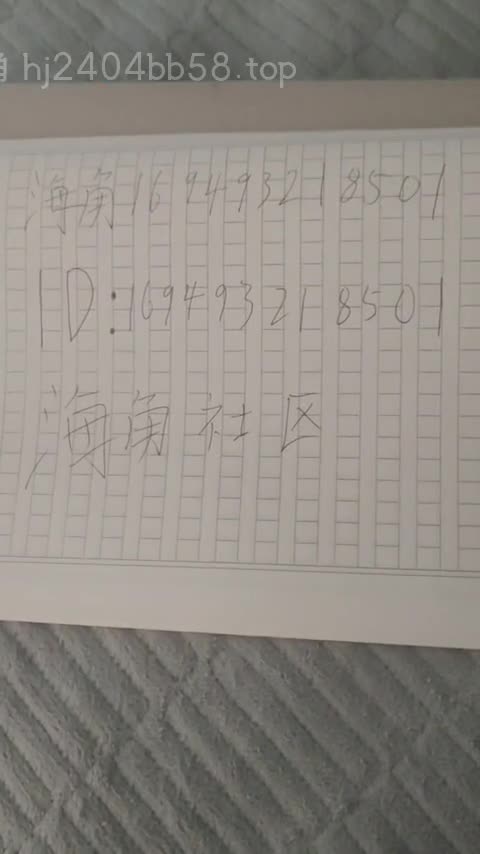 角 hj2404bb58.top
海角169493218501
ID:169493218501
海角社区